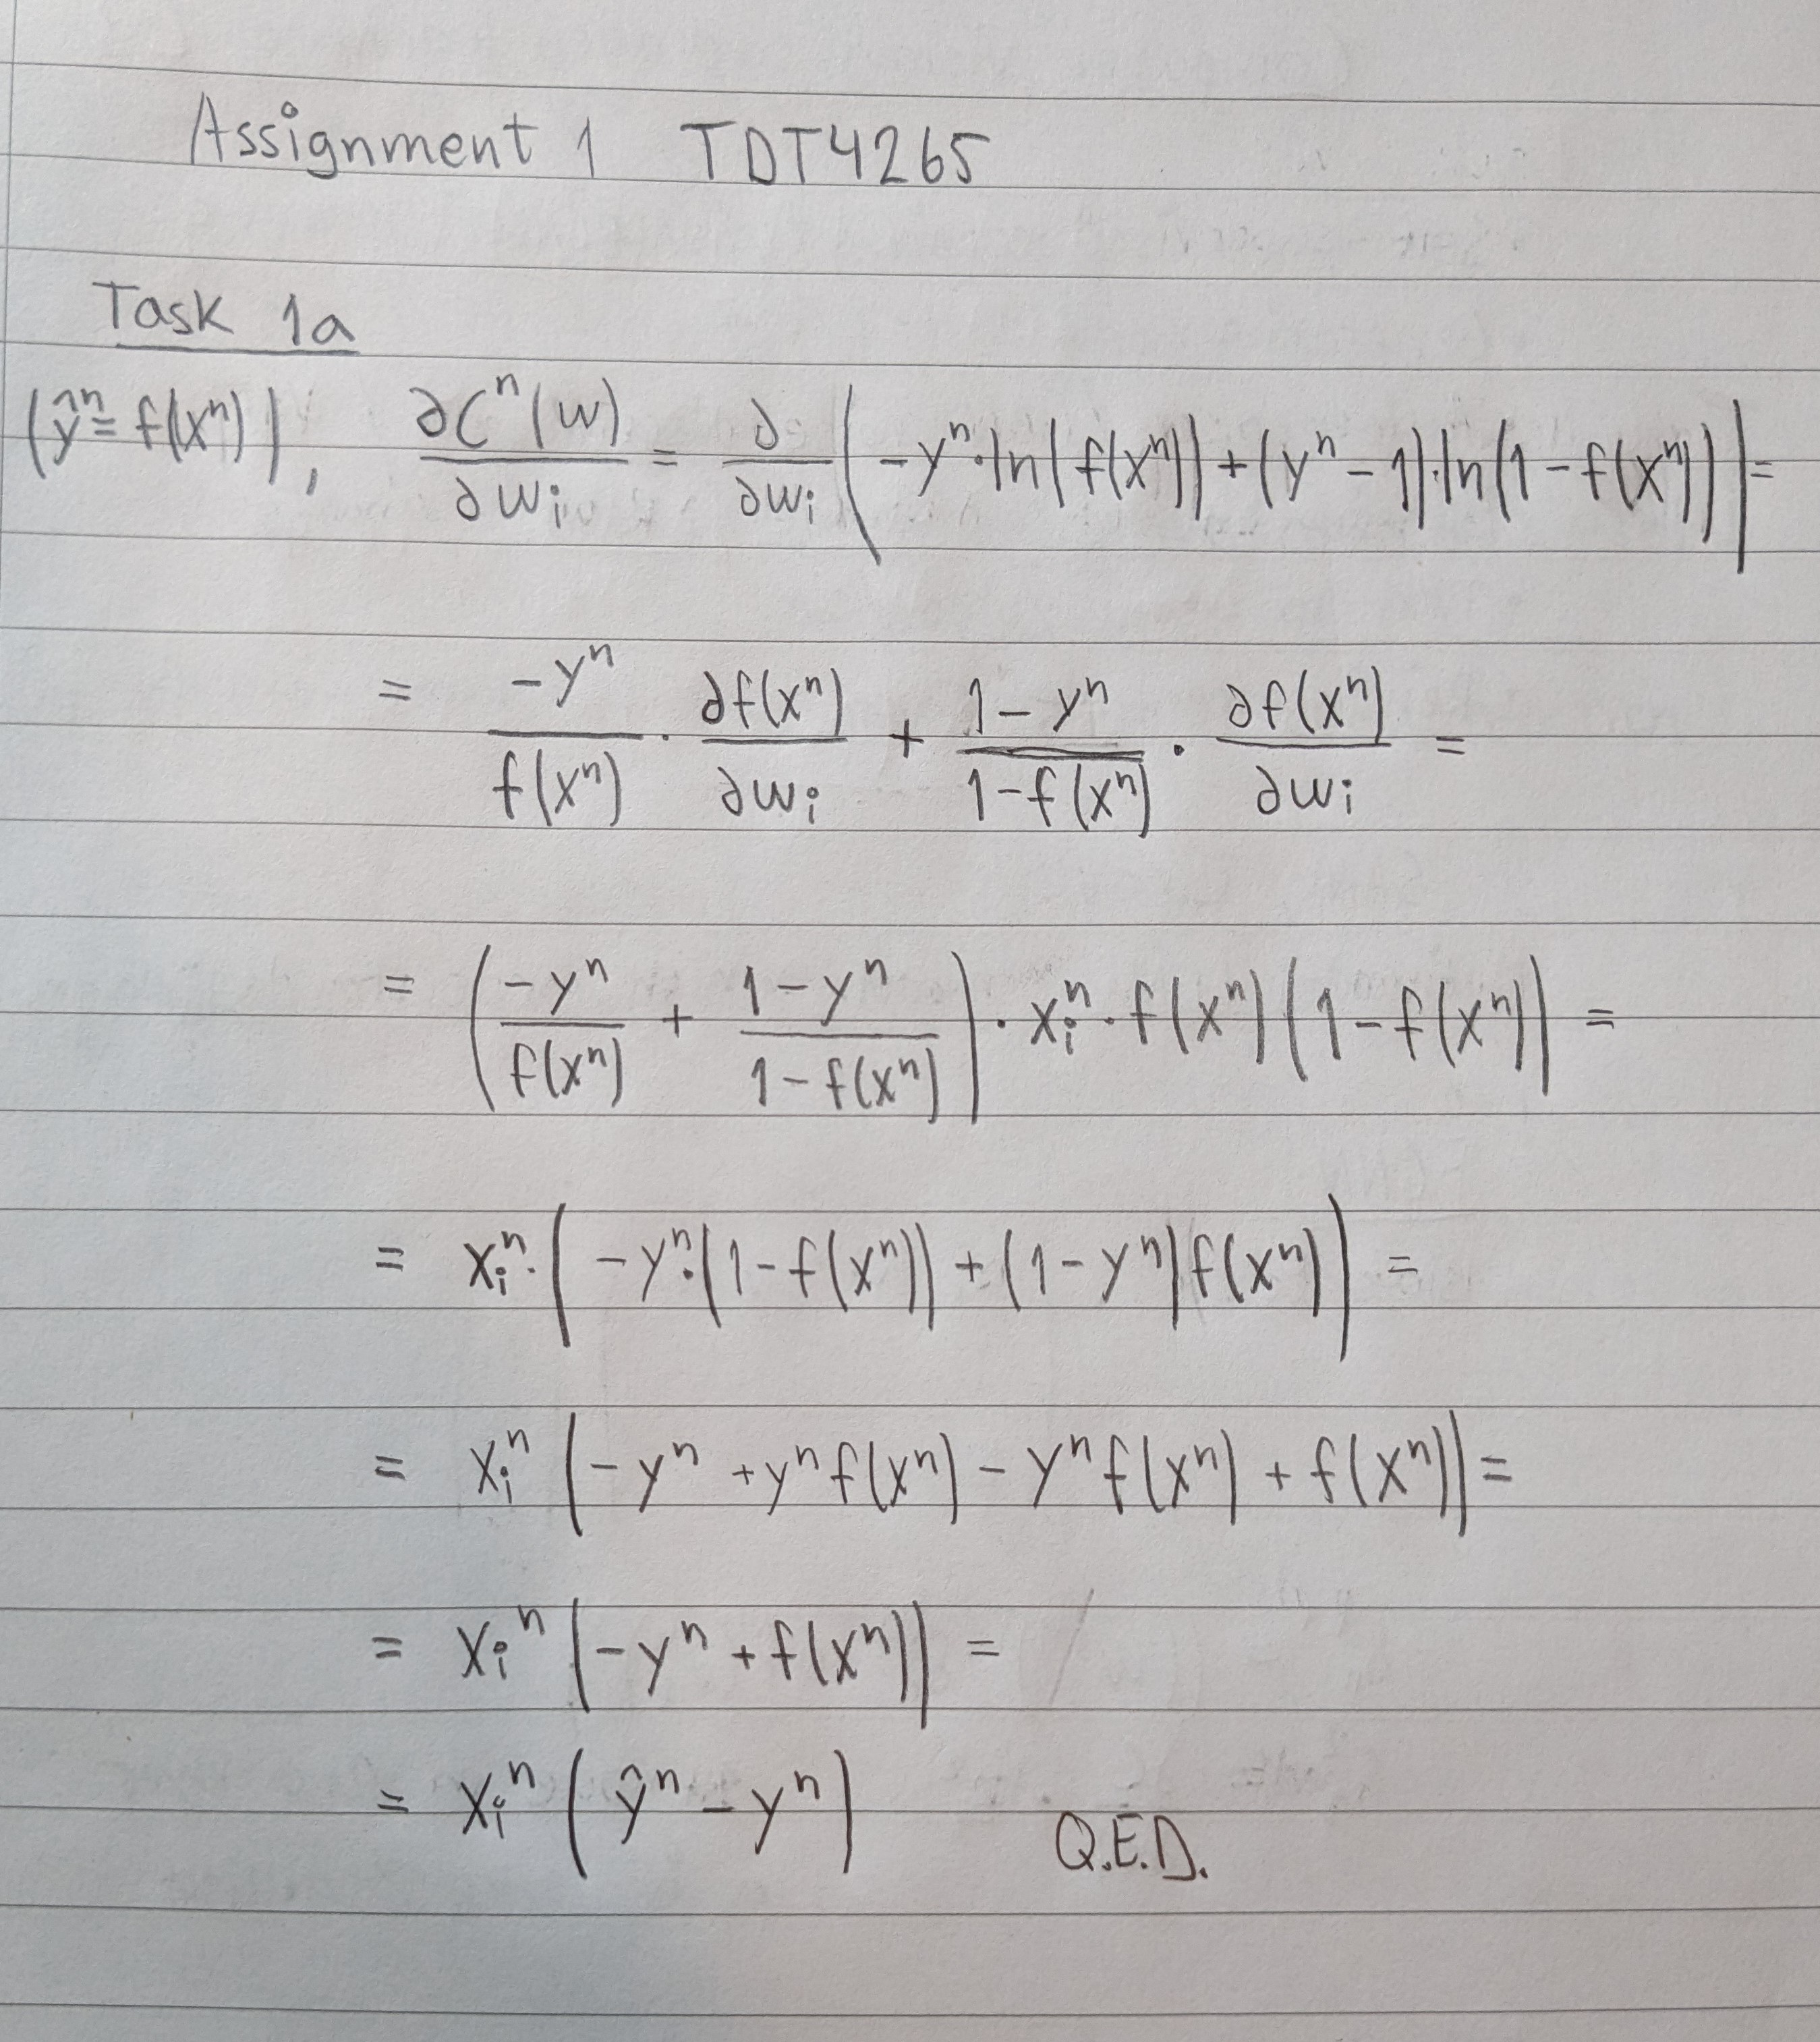 Assignment 1 TDT4265
Task 1a
(ŷⁿ = f(xⁿ)), ∂Cⁿ(w)/∂wᵢ = ∂/∂wᵢ (-yⁿ·ln(f(xⁿ)) + (yⁿ - 1)·ln(1 - f(xⁿ))) =
= -yⁿ/f(xⁿ) · ∂f(xⁿ)/∂wᵢ + (1 - yⁿ)/(1 - f(xⁿ)) · ∂f(xⁿ)/∂wᵢ =
= (-yⁿ/f(xⁿ) + (1 - yⁿ)/(1 - f(xⁿ))) · xᵢⁿ · f(xⁿ)(1 - f(xⁿ)) =
= xᵢⁿ·(-yⁿ·(1 - f(xⁿ)) + (1 - yⁿ)f(xⁿ)) =
= xᵢⁿ (-yⁿ + yⁿf(xⁿ) - yⁿf(xⁿ) + f(xⁿ)) =
= xᵢⁿ (-yⁿ + f(xⁿ)) =
= xᵢⁿ (ŷⁿ - yⁿ) Q.E.D.